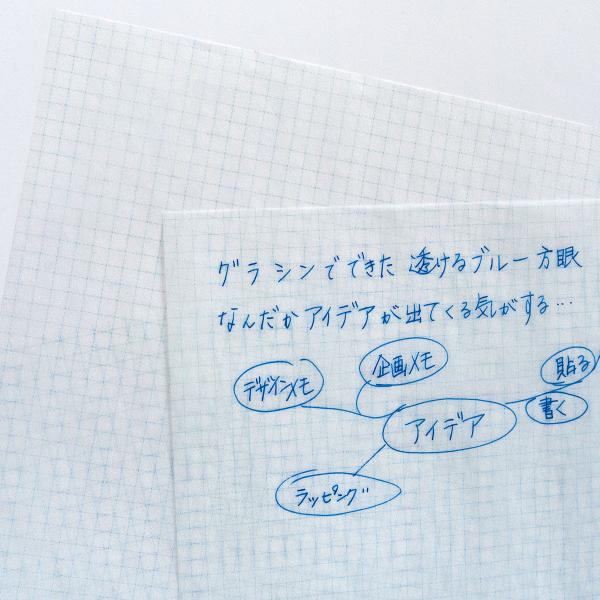 グラシンでできた 透けるブルー方眼
なんだか アイデアが出てくる気がする…
企画メモ
デザインメモ
貼る
書く
アイデア
ラッピング